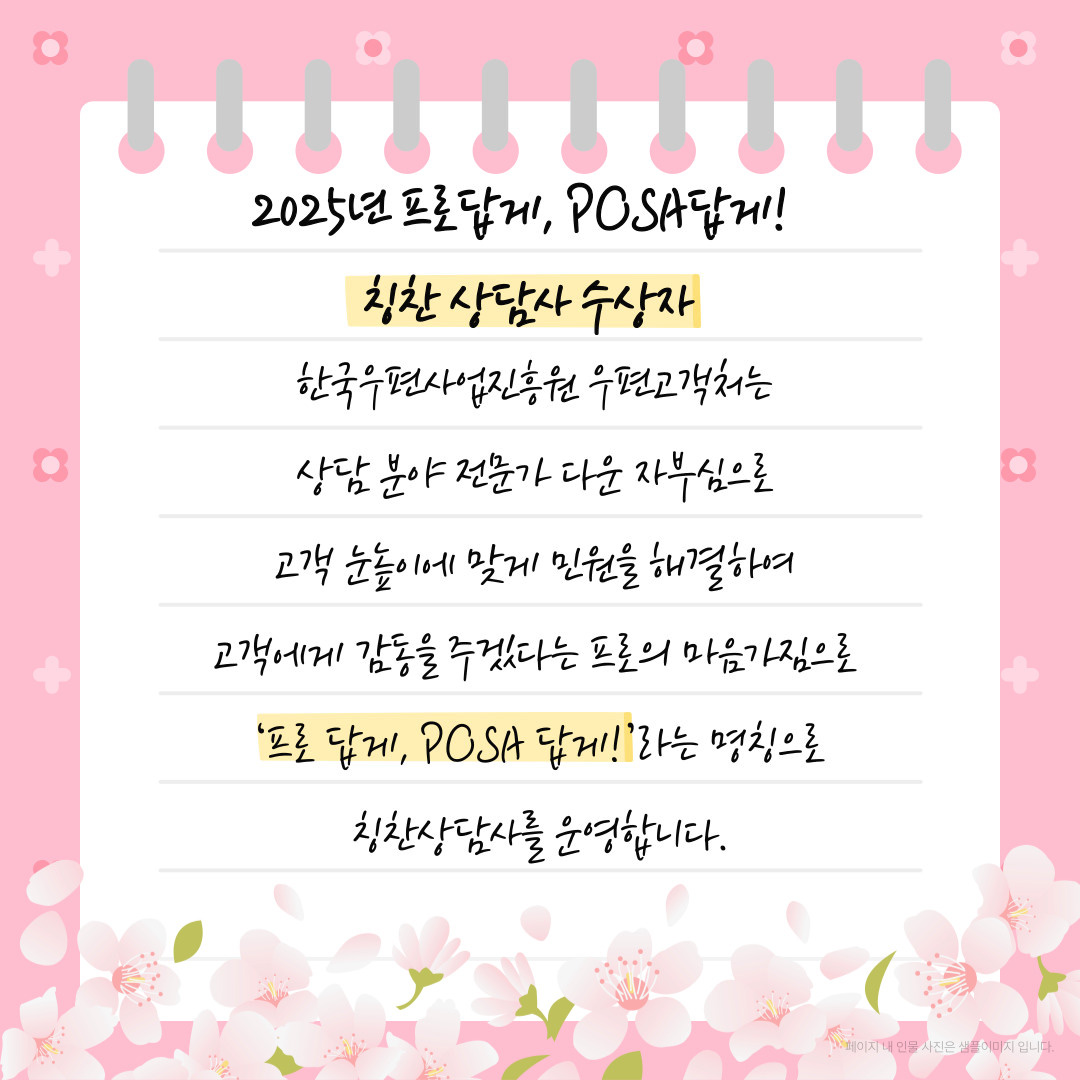 2025년 프로답게, POSA답게!
칭찬 상담사 수상자
한국우편사업진흥원 우편고객처는
상담 분야 전문가 다운 자부심으로
고객 눈높이에 맞게 민원을 해결하여
고객에게 감동을 주겠다는 프로의 마음가짐으로
‘프로 답게, POSA 답게!’라는 명칭으로
칭찬상담사를 운영합니다.
페이지 내 인물 사진은 샘플이미지 입니다.